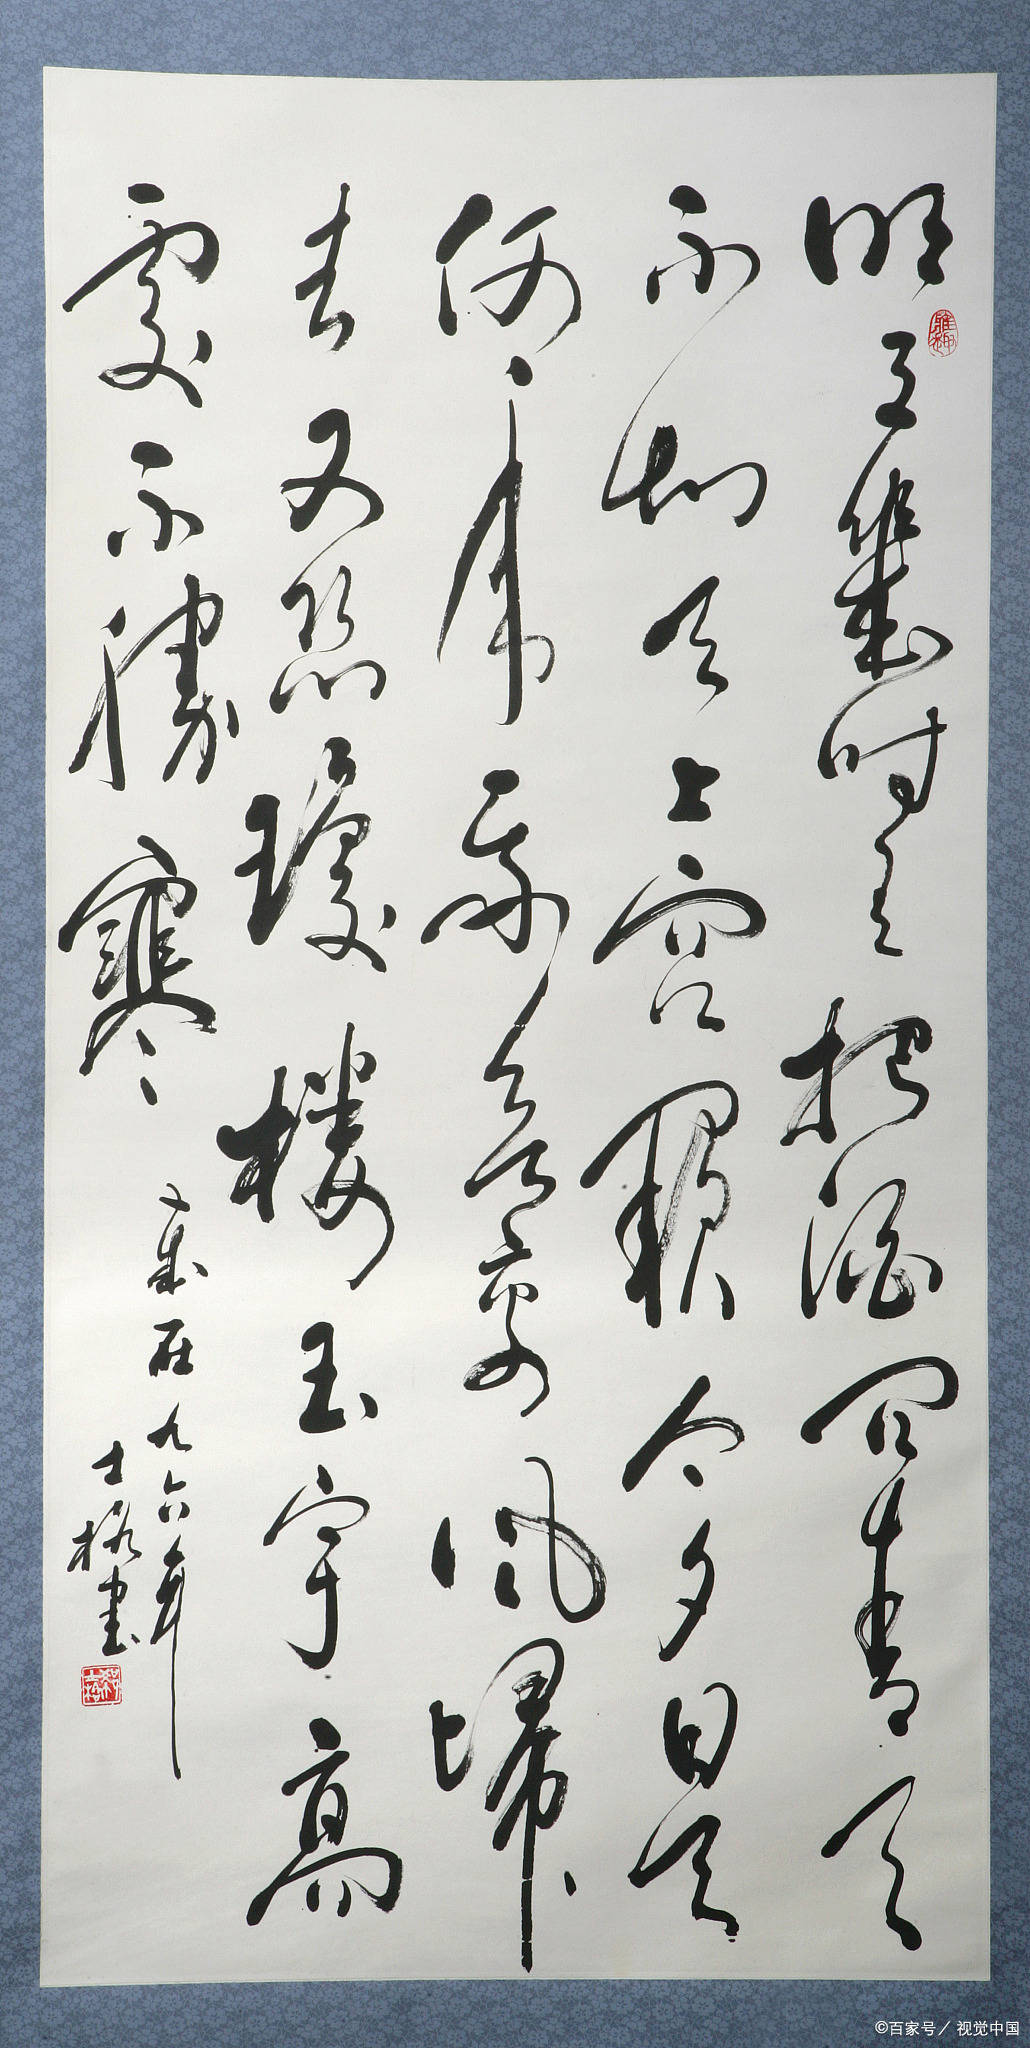 明月幾时有把酒问青天
不知天上宫阙今夕是
何年我欲乘风歸
去又恐瓊樓玉宇高
處不勝寒
歲在九六年
士格書
©百家号／视觉中国